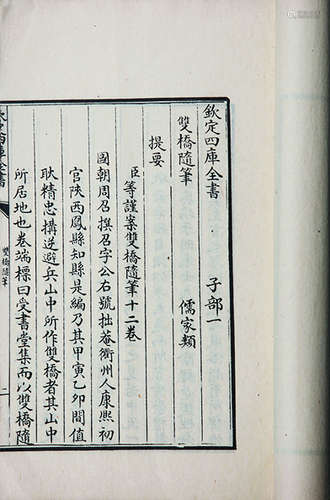 欽定四庫全書
子部一
雙橋隨筆
儒家類
提要
臣等謹案雙橋隨筆十二卷
國朝周召撰召字公右號拙菴衢州人康熙初
官陝西鳳縣知縣是編乃其甲寅乙卯間值
耿精忠搆逆避兵山中所作雙橋者其山中
所居地也卷端標曰受書堂集而以雙橋隨
雙橋隨筆
一